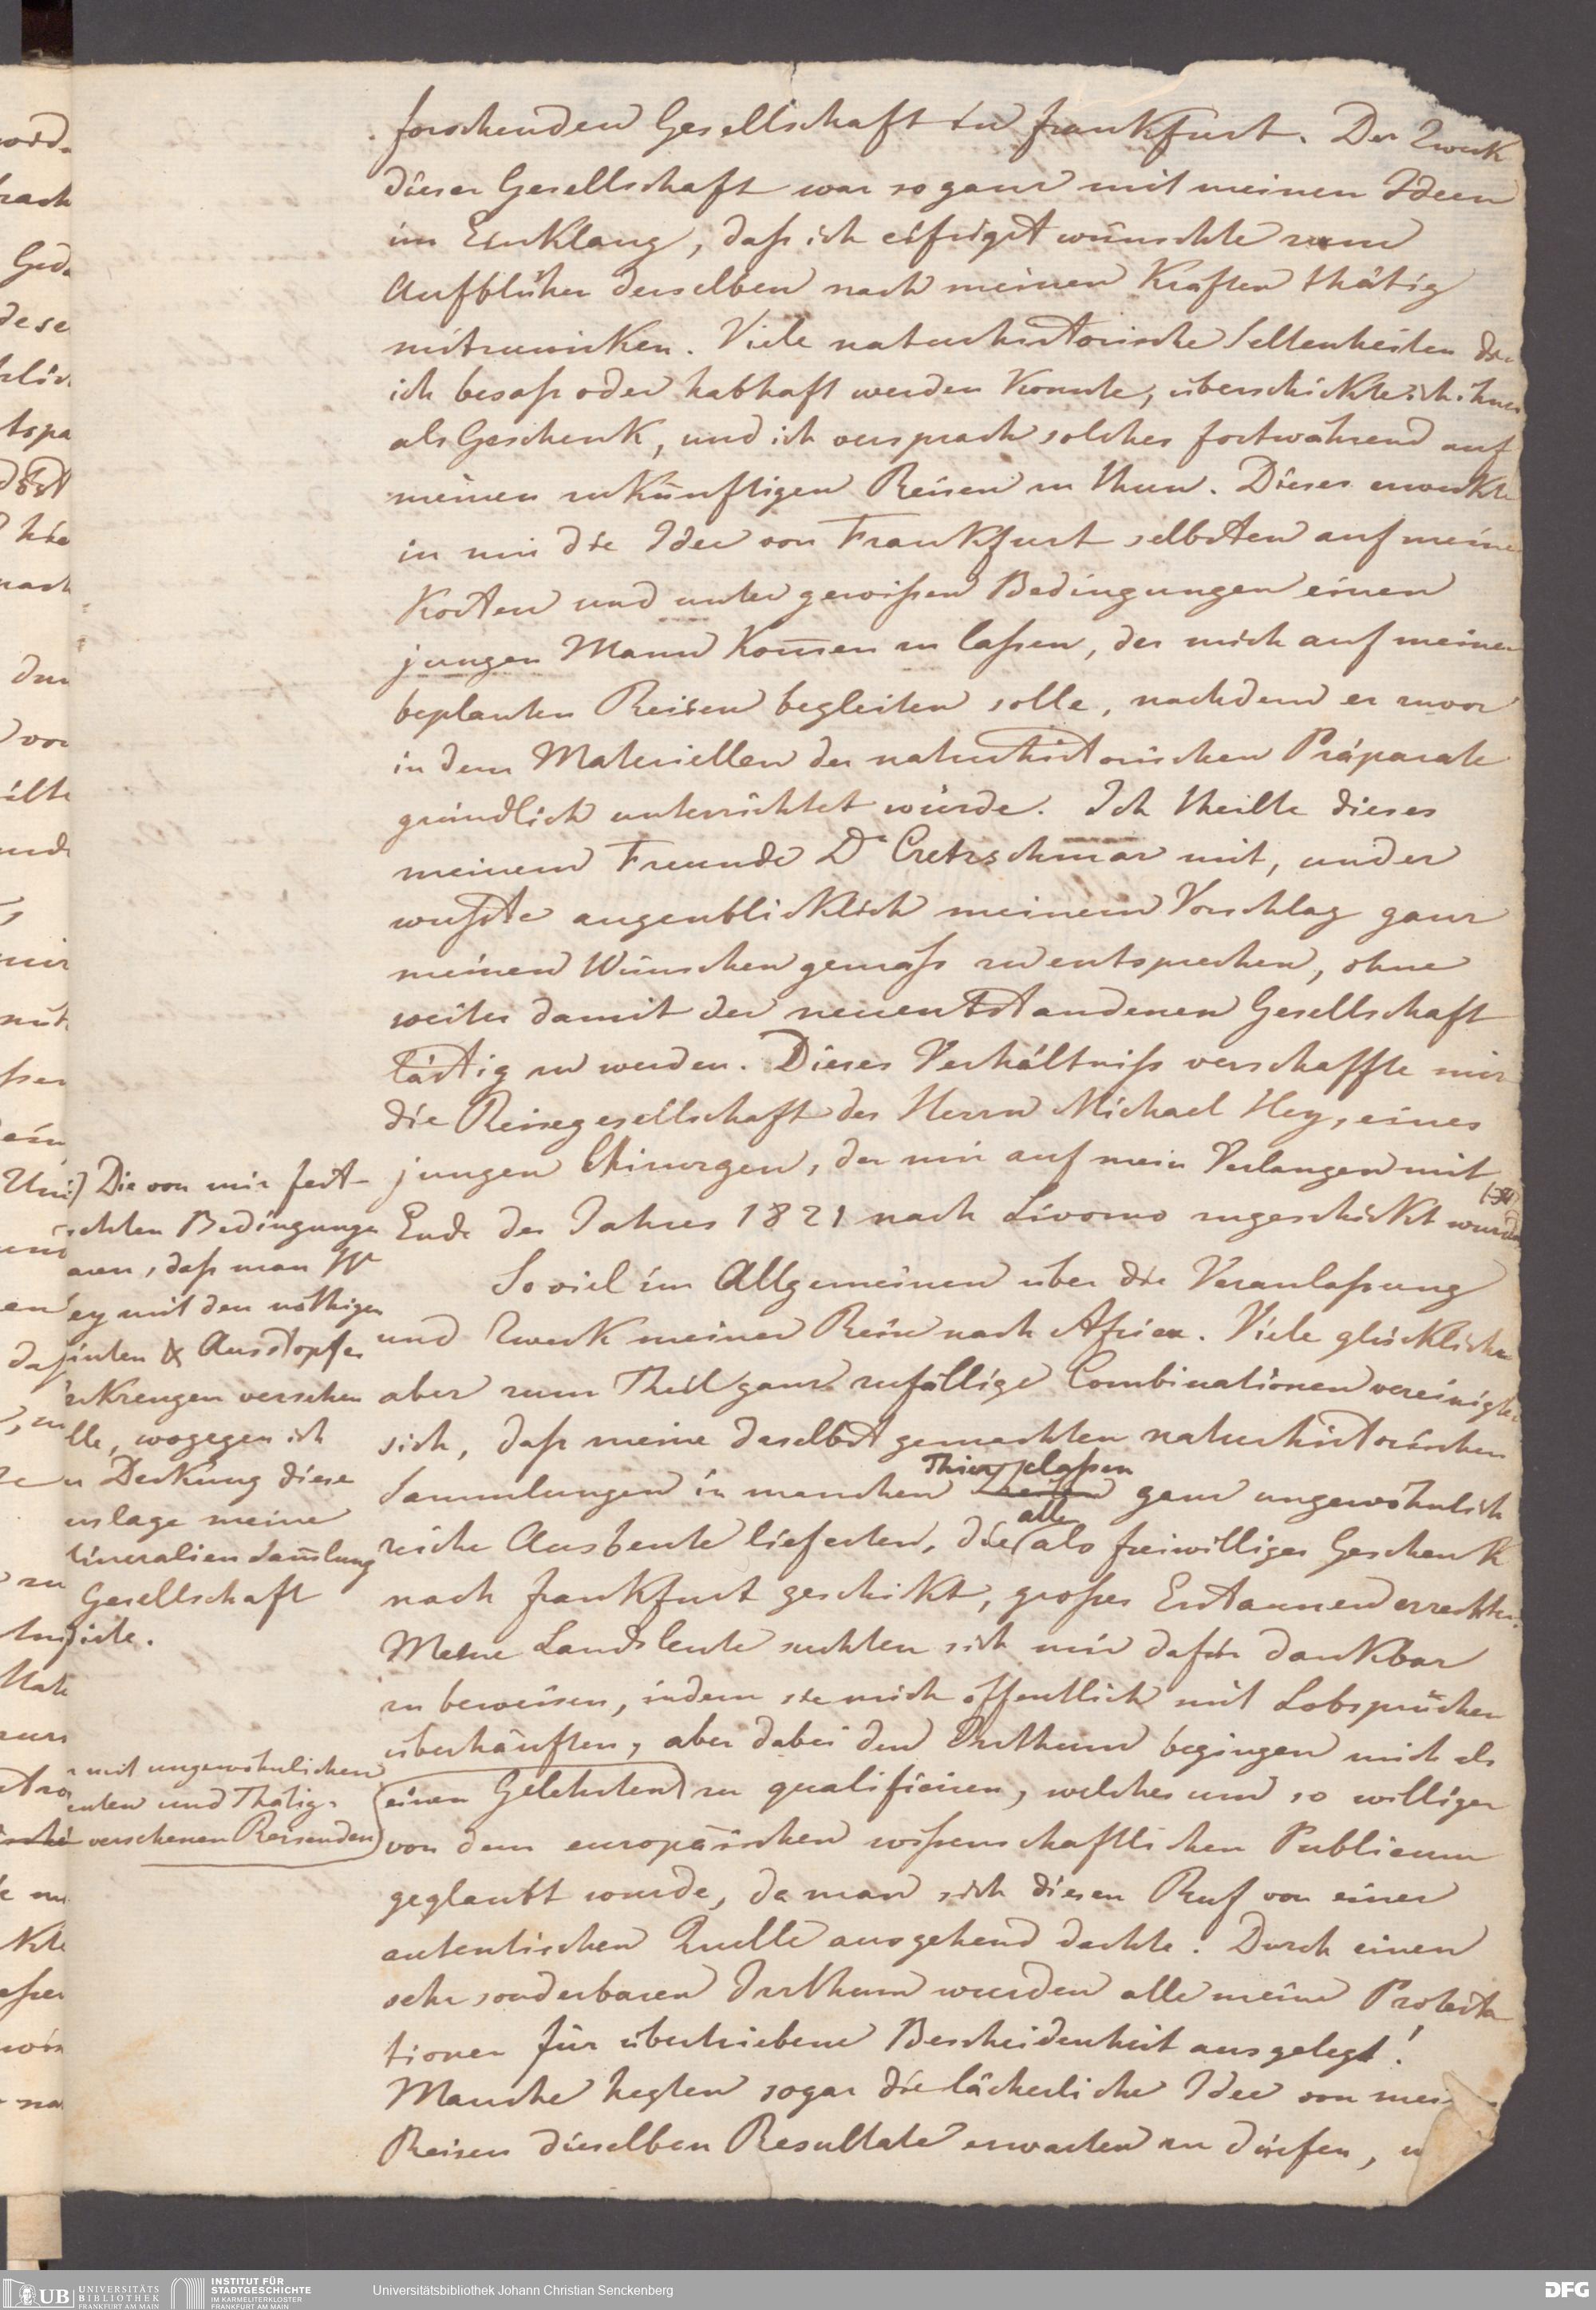 forschenden Gesellschaft in Frankfurt. Der Zweck
dieser Gesellschaft war so ganz mit meinen Ideen
im Einklang, daß ich eifrigst wünschte zum
Aufblühen derselben nach meinen Kräften thätig
mitzuwirken. Viele naturhistorische Seltenheiten
ich besaß oder habhaft werden konnte, überschickte ich ihnen
als Geschenk, und ich versprach solches fortwährend auf
meinen zukünftigen Reisen zu thun. Dieses erweckte
in mir die Idee von Frankfurt selbsten auf meine
Kosten und unter gewißen Bedingungen einen
jungen Mann kom̅en zu laßen, der mich auf meinen
beplanten Reisen begleiten solle, nachdem er zuvor
in dem Materiellen der naturhistorischen Präparate
gründlich unterrichtet würde. Ich theilte dieses
meinem Freunde Dr Cretzschmar mit, und er
wußte augenblicklich meinem Vorschlag ganz
meinen Wünschen gemäß zu entsprechen, ohne
weiter damit der neuentstandenen Gesellschaft
lästig zu werden. Dieses Verhältniß verschaffte mir
die Reisegesellschaft des Herrn Michael Hey, eines
jungen Chirurgen, der mir auf mein Verlangen mit
Ende des Jahres 1821 nach Livorno zugeschickt wurde
So viel im Allgemeinen über die Veranlaßung
und Zweck meiner Reise nach Africa. Viele glückliche
aber zum Theil ganz zufällige Combinationen vereinigten
sich, daß meine daselbst gemachten naturhistorischen
Thierclaßen
Sammlungen in manchen ganz ungewöhnlich
alle
reiche Ausbeute lieferten, die als freiwilliges Geschenk
nach Frankfurt geschikt, großes Erstaunen erreckten.
Meine Landsleute suchten sich mir dafür dankbar
zu beweisen, indem sie mich öffentlich mit Lobsprüchen
überhäuften, aber dabei den Irrthum begingen mich als
einen Gelehrten zu qualificiren, welches um so williger
von dem europäischen wißenschaftlichen Publicum
geglaubt wurde, da man sich diesen Ruf von einer
autentischen Quelle ausgehend dachte. Durch einen
sehr sonderbaren Irrthum wurden alle meine Protesta
tionen für übertriebene Bescheidenheit ausgelegt!
Manche hegten sogar die lächerliche Idee von mei
Reisen dieselben Resultate erwarten zu dürfen,
) Die von mir fest-
schten Bedingunge
aren, daß man Hr
ey mit den nöthigen
inten & Ausstopfer
erkzeugen versehen
lle, wogegen ich
Deckung diese
uslage meine
ineralien Sam̅lung
Gesellschaft
mit ungewöhnlichen
enten und Thätig-
versehenen Reisenden
UB UNIVERSITÄTS
BIBLIOTHEK
FRANKFURT AM MAIN
INSTITUT FÜR
STADTGESCHICHTE
IM KARMELITERKLOSTER
FRANKFURT AM MAIN
Universitätsbibliothek Johann Christian Senckenberg
DFG